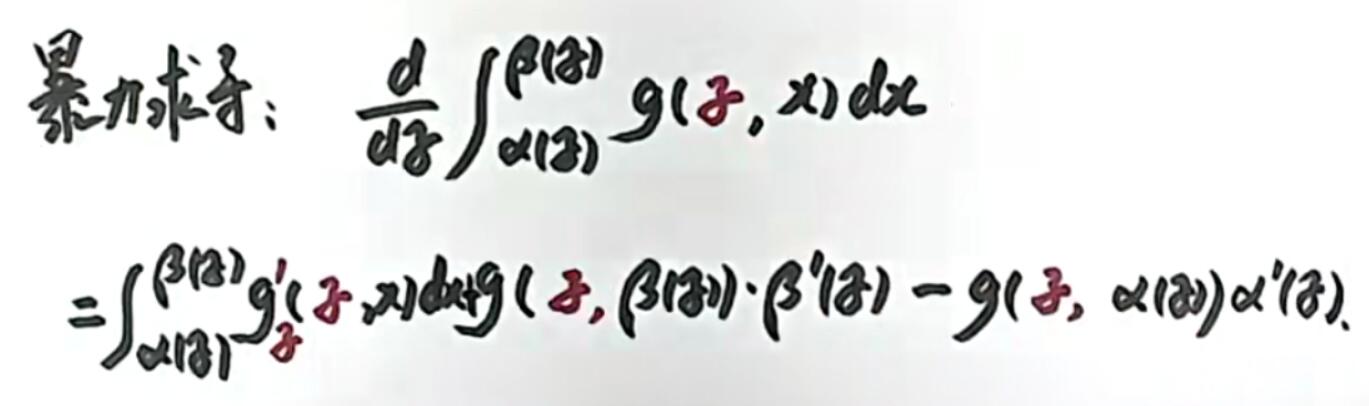 暴力求导: d/dz ∫_{α(z)}^{β(z)} g(z, x) dx
= ∫_{α(z)}^{β(z)} g'_z(z, x) dx + g(z, β(z))·β'(z) − g(z, α(z)) α'(z).